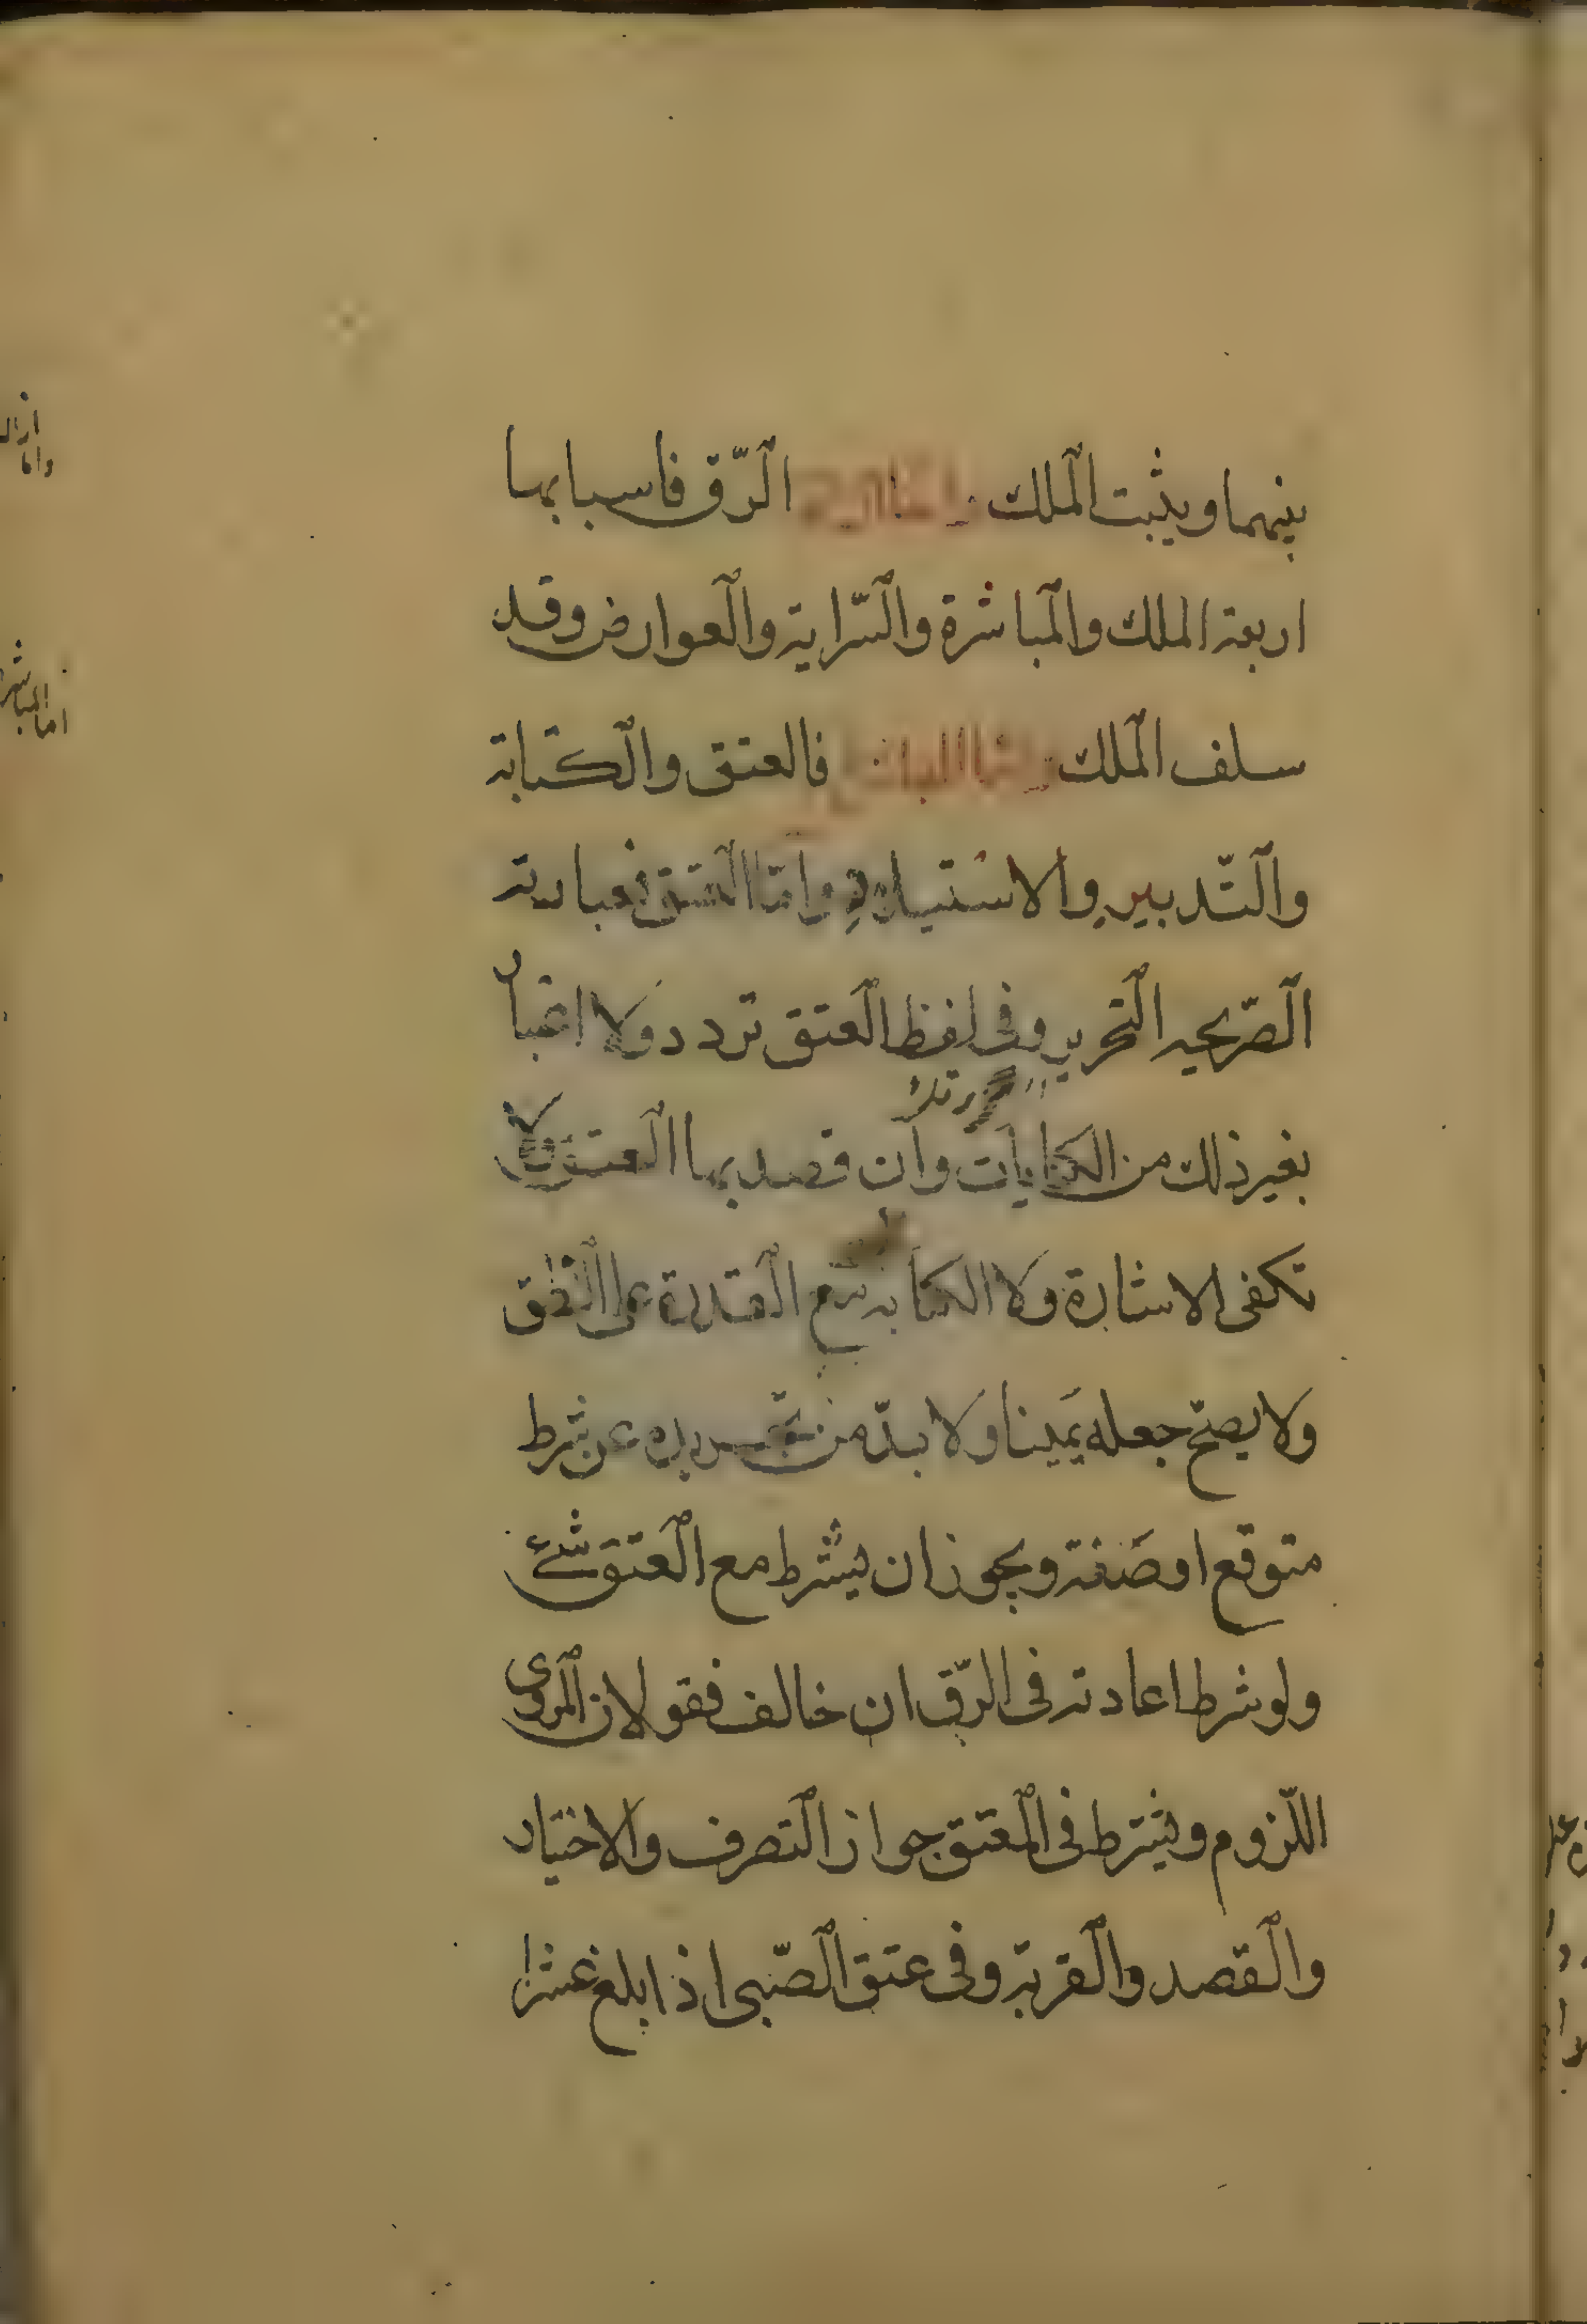 بينهما ويثبت الملك الرّق فاسبابها
اربعة الملك والمباشرة والسّراية والعوارض وقد
سلف الملك فالعتق والكتابة
والتّدبير والاستيلاد وامّا العتق فعبارته
الصّريحه التحرير وفى لفظ العتق تردد ولا اعتبار
بغير ذلك من الكنايات وان قصد بها العتق ولا
تكفى الاشارة ولا الكتابة مع القدرة على النطق
ولا يصحّ جعله يمينا ولا بدّ من تجريده عن شرط
متوقع او صفة ويجوز ان يشرط مع العتق شئ
ولو شرط اعادته فى الرّق ان خالف فقولان المروى
اللّزوم ويشترط فى المعتق جواز التصرف والاختيار
والقصد والقربة وفى عتق الصّبى اذا بلغ عشرا
اما المباشرة